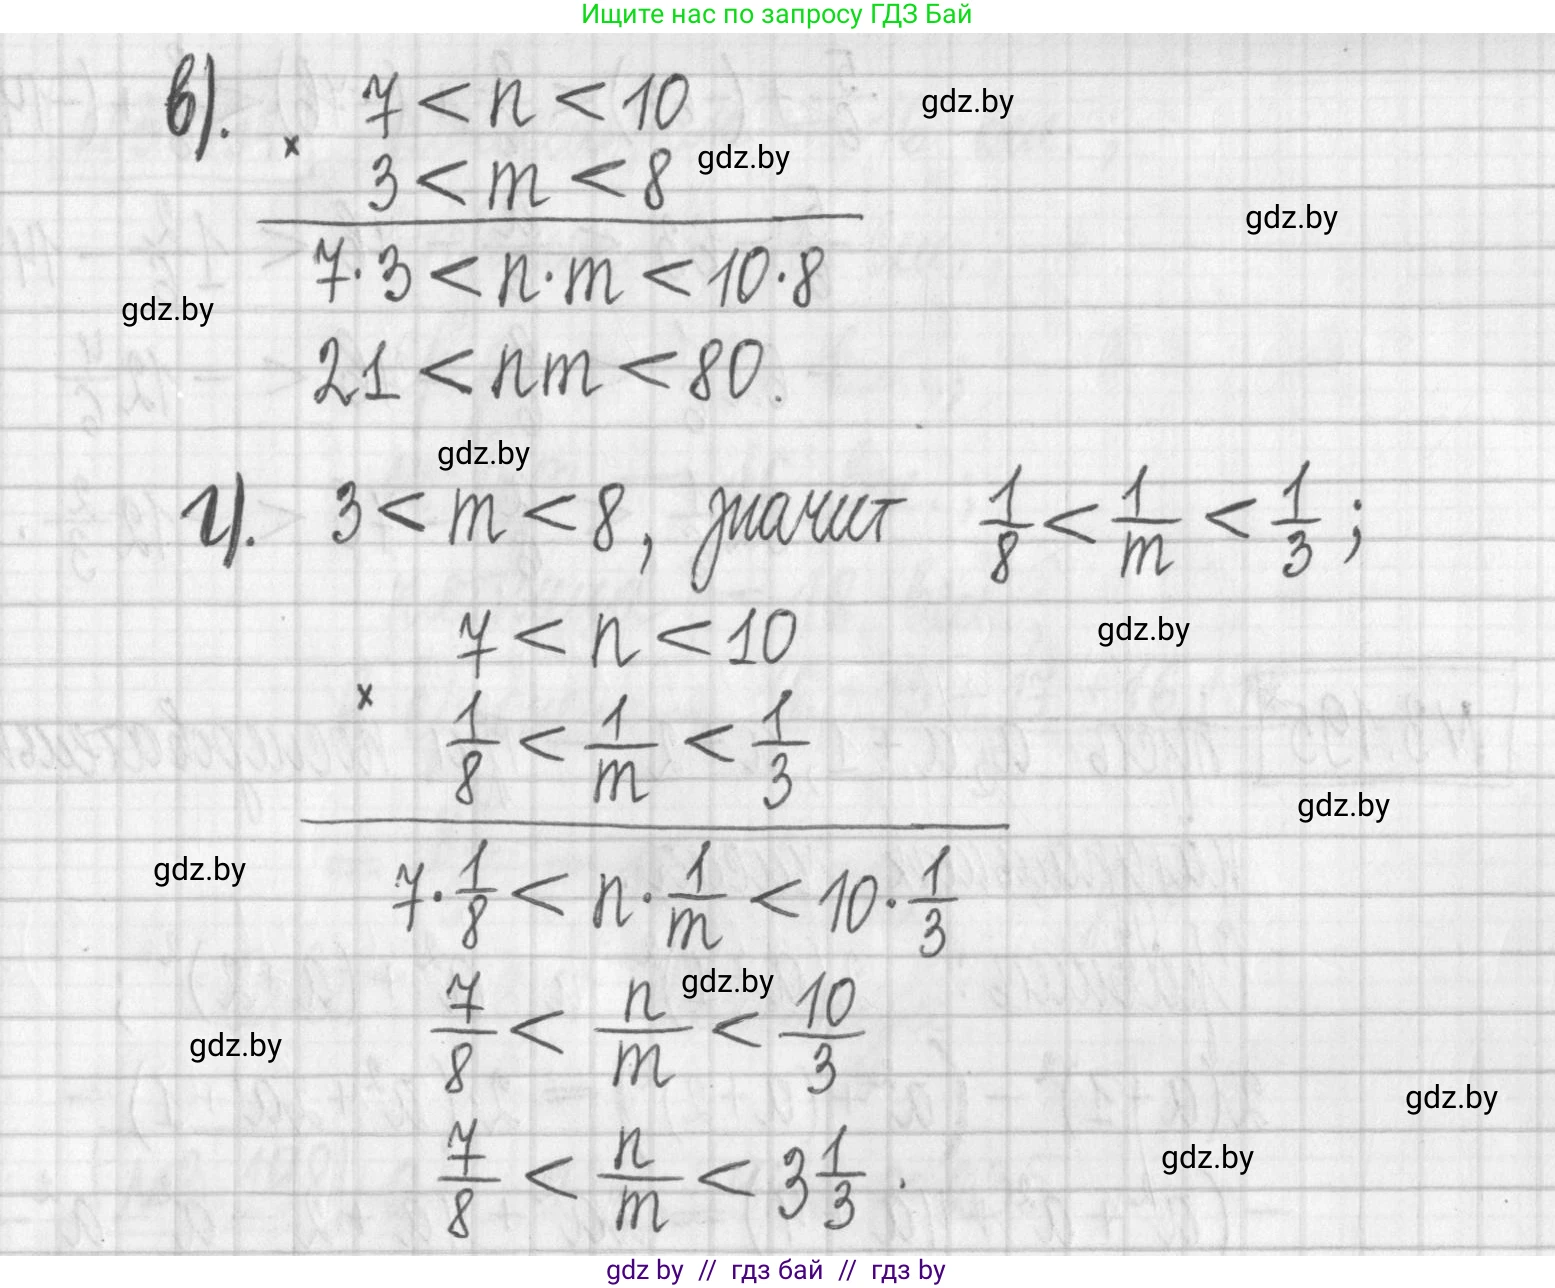 Ищите нас по запросу ГДЗ Бай
в). 7 < n < 10 gdz.by
× 3 < m < 8 gdz.by
gdz.by
7·3 < n·m < 10·8
gdz.by
21 < nm < 80.
gdz.by
г). 3 < m < 8, значит 1/8 < 1/m < 1/3 ;
7 < n < 10 gdz.by
× 1/8 < 1/m < 1/3
gdz.by
gdz.by 7·1/8 < n·1/m < 10·1/3
gdz.by
7/8 < n/m < 10/3
gdz.by
gdz.by
7/8 < n/m < 3 1/3 . gdz.by
gdz by // гдз бай // гдз by